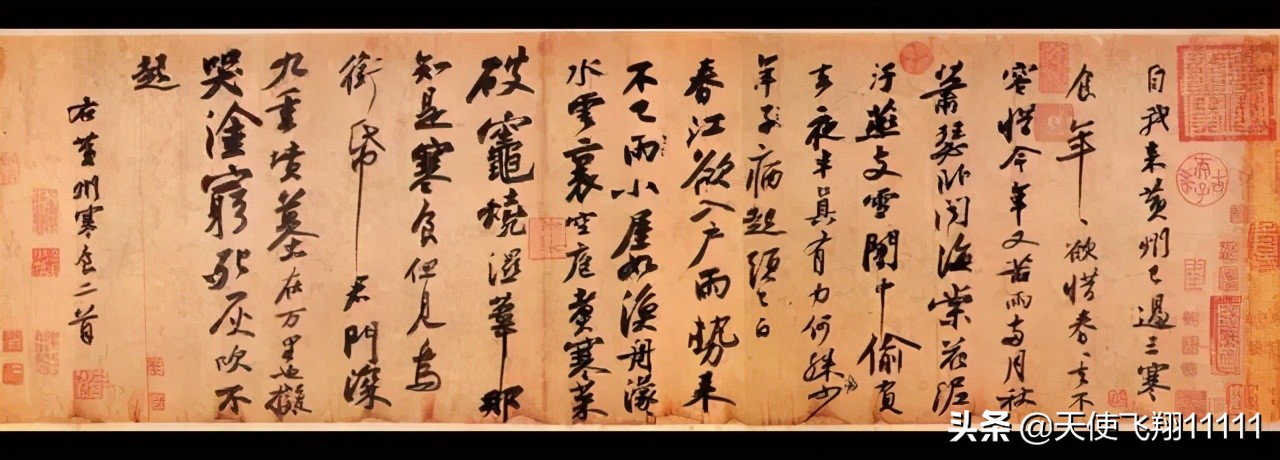 自我來黃州已過三寒
食年〻欲惜春〻去不
容惜今年又苦雨兩月秋
蕭瑟臥聞海棠花泥
汙燕支雪闇中偷負
去夜半真有力何殊少
年子病起頭已白
春江欲入戶雨勢來
不已雨小屋如漁舟濛〻
水雲裏空庖煮寒菜
破竈燒濕葦那
知是寒食但見烏
銜帋君門深
九重墳墓在万里也擬
哭塗窮死灰吹不
起
右黃州寒食二首
头条 @天使飞翔11111